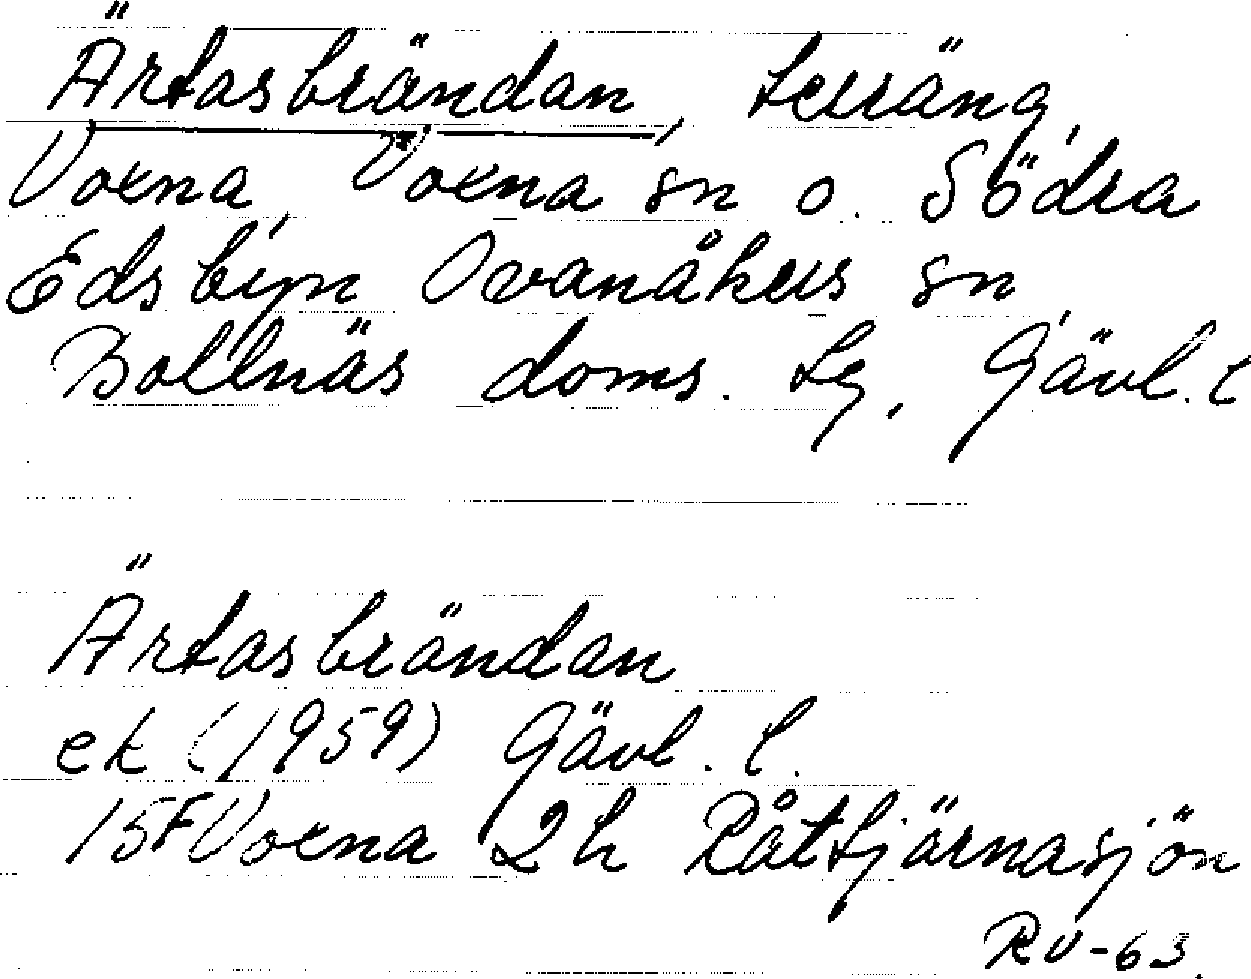 Ärtasbrändan, terräng,
Voxna, Voxna sn o. Södra
Edsbyn Ovanåkers sn,
Bollnäs doms. tg, Gävl. l
Ärtasbrändan
ek (1959) Gävl. l.
15F Voxna 2h Råttjärnasjön
RV-63.